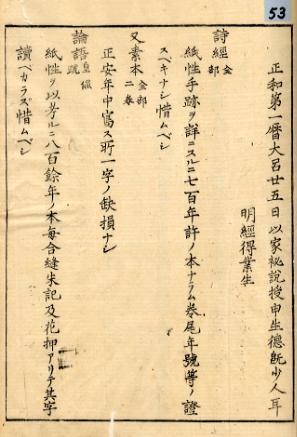 53
正和第一曆大呂廿五日以家秘說授申生德既少人耳
明經得業生
詩經 全部
紙性手跡ヲ詳ニスルニ七百年許ノ本ナラム卷尾年號等ノ證
スベキナシ惜ムベシ
又 素本 全部二卷
正安年中寫ス所一字ノ缺損ナシ
論語 皇侃疏
紙性ヲ以考ルニ八百餘年ノ本每合縫朱記及花押アリテ其字
讀ベカラズ惜ムベシ